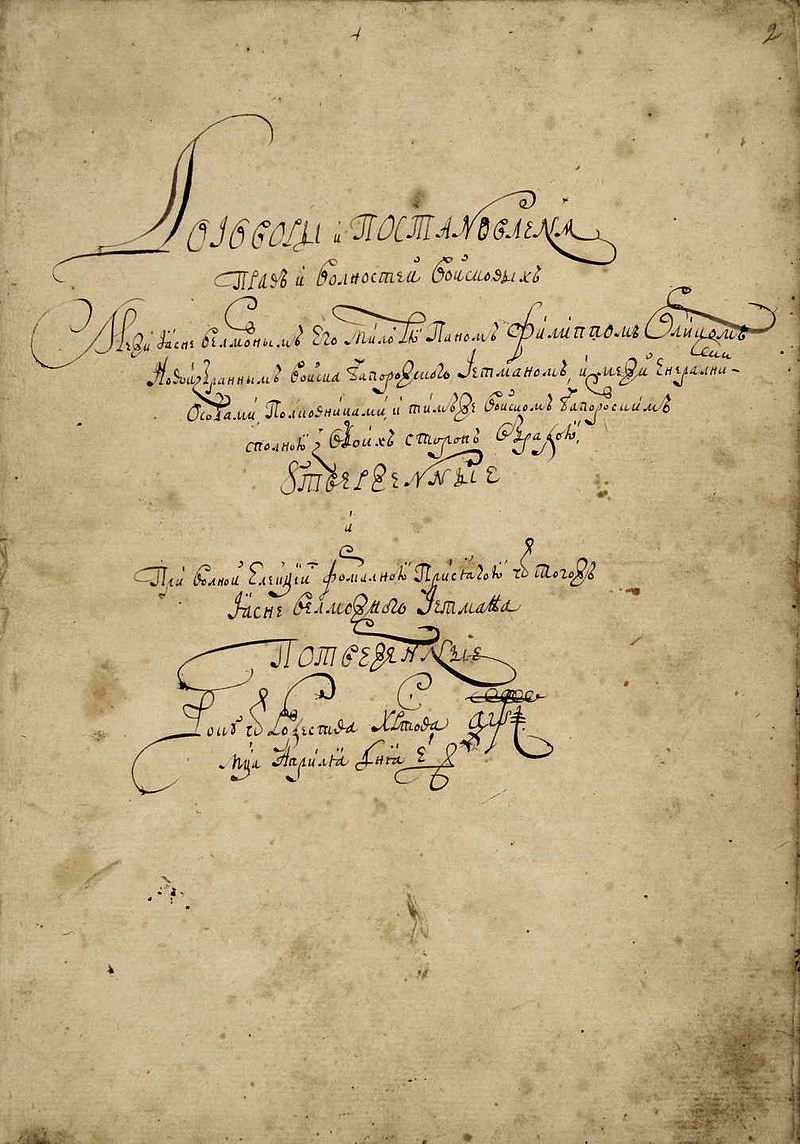 2
Договоры и Постановлѣня
Правъ и волностей войсковыхъ
Межи Ясне велможнымъ Его Милостю Паномъ Филиппомъ Орликомъ
Новоизбраннымъ войска Запорозкого Гетманомъ, и межи Енералними
Особами Полковниками и тимъже войскомъ Запорозкимъ
сполною з обоихъ сторонъ обрадою
Утверженные
и
При волной Елекцїи формалною Присягою ѿ тогожъ
Ясне велможного Гетмана
Потверженные
Року ѿ Рожества Христова ҂аѱı
Мца Априля дня е